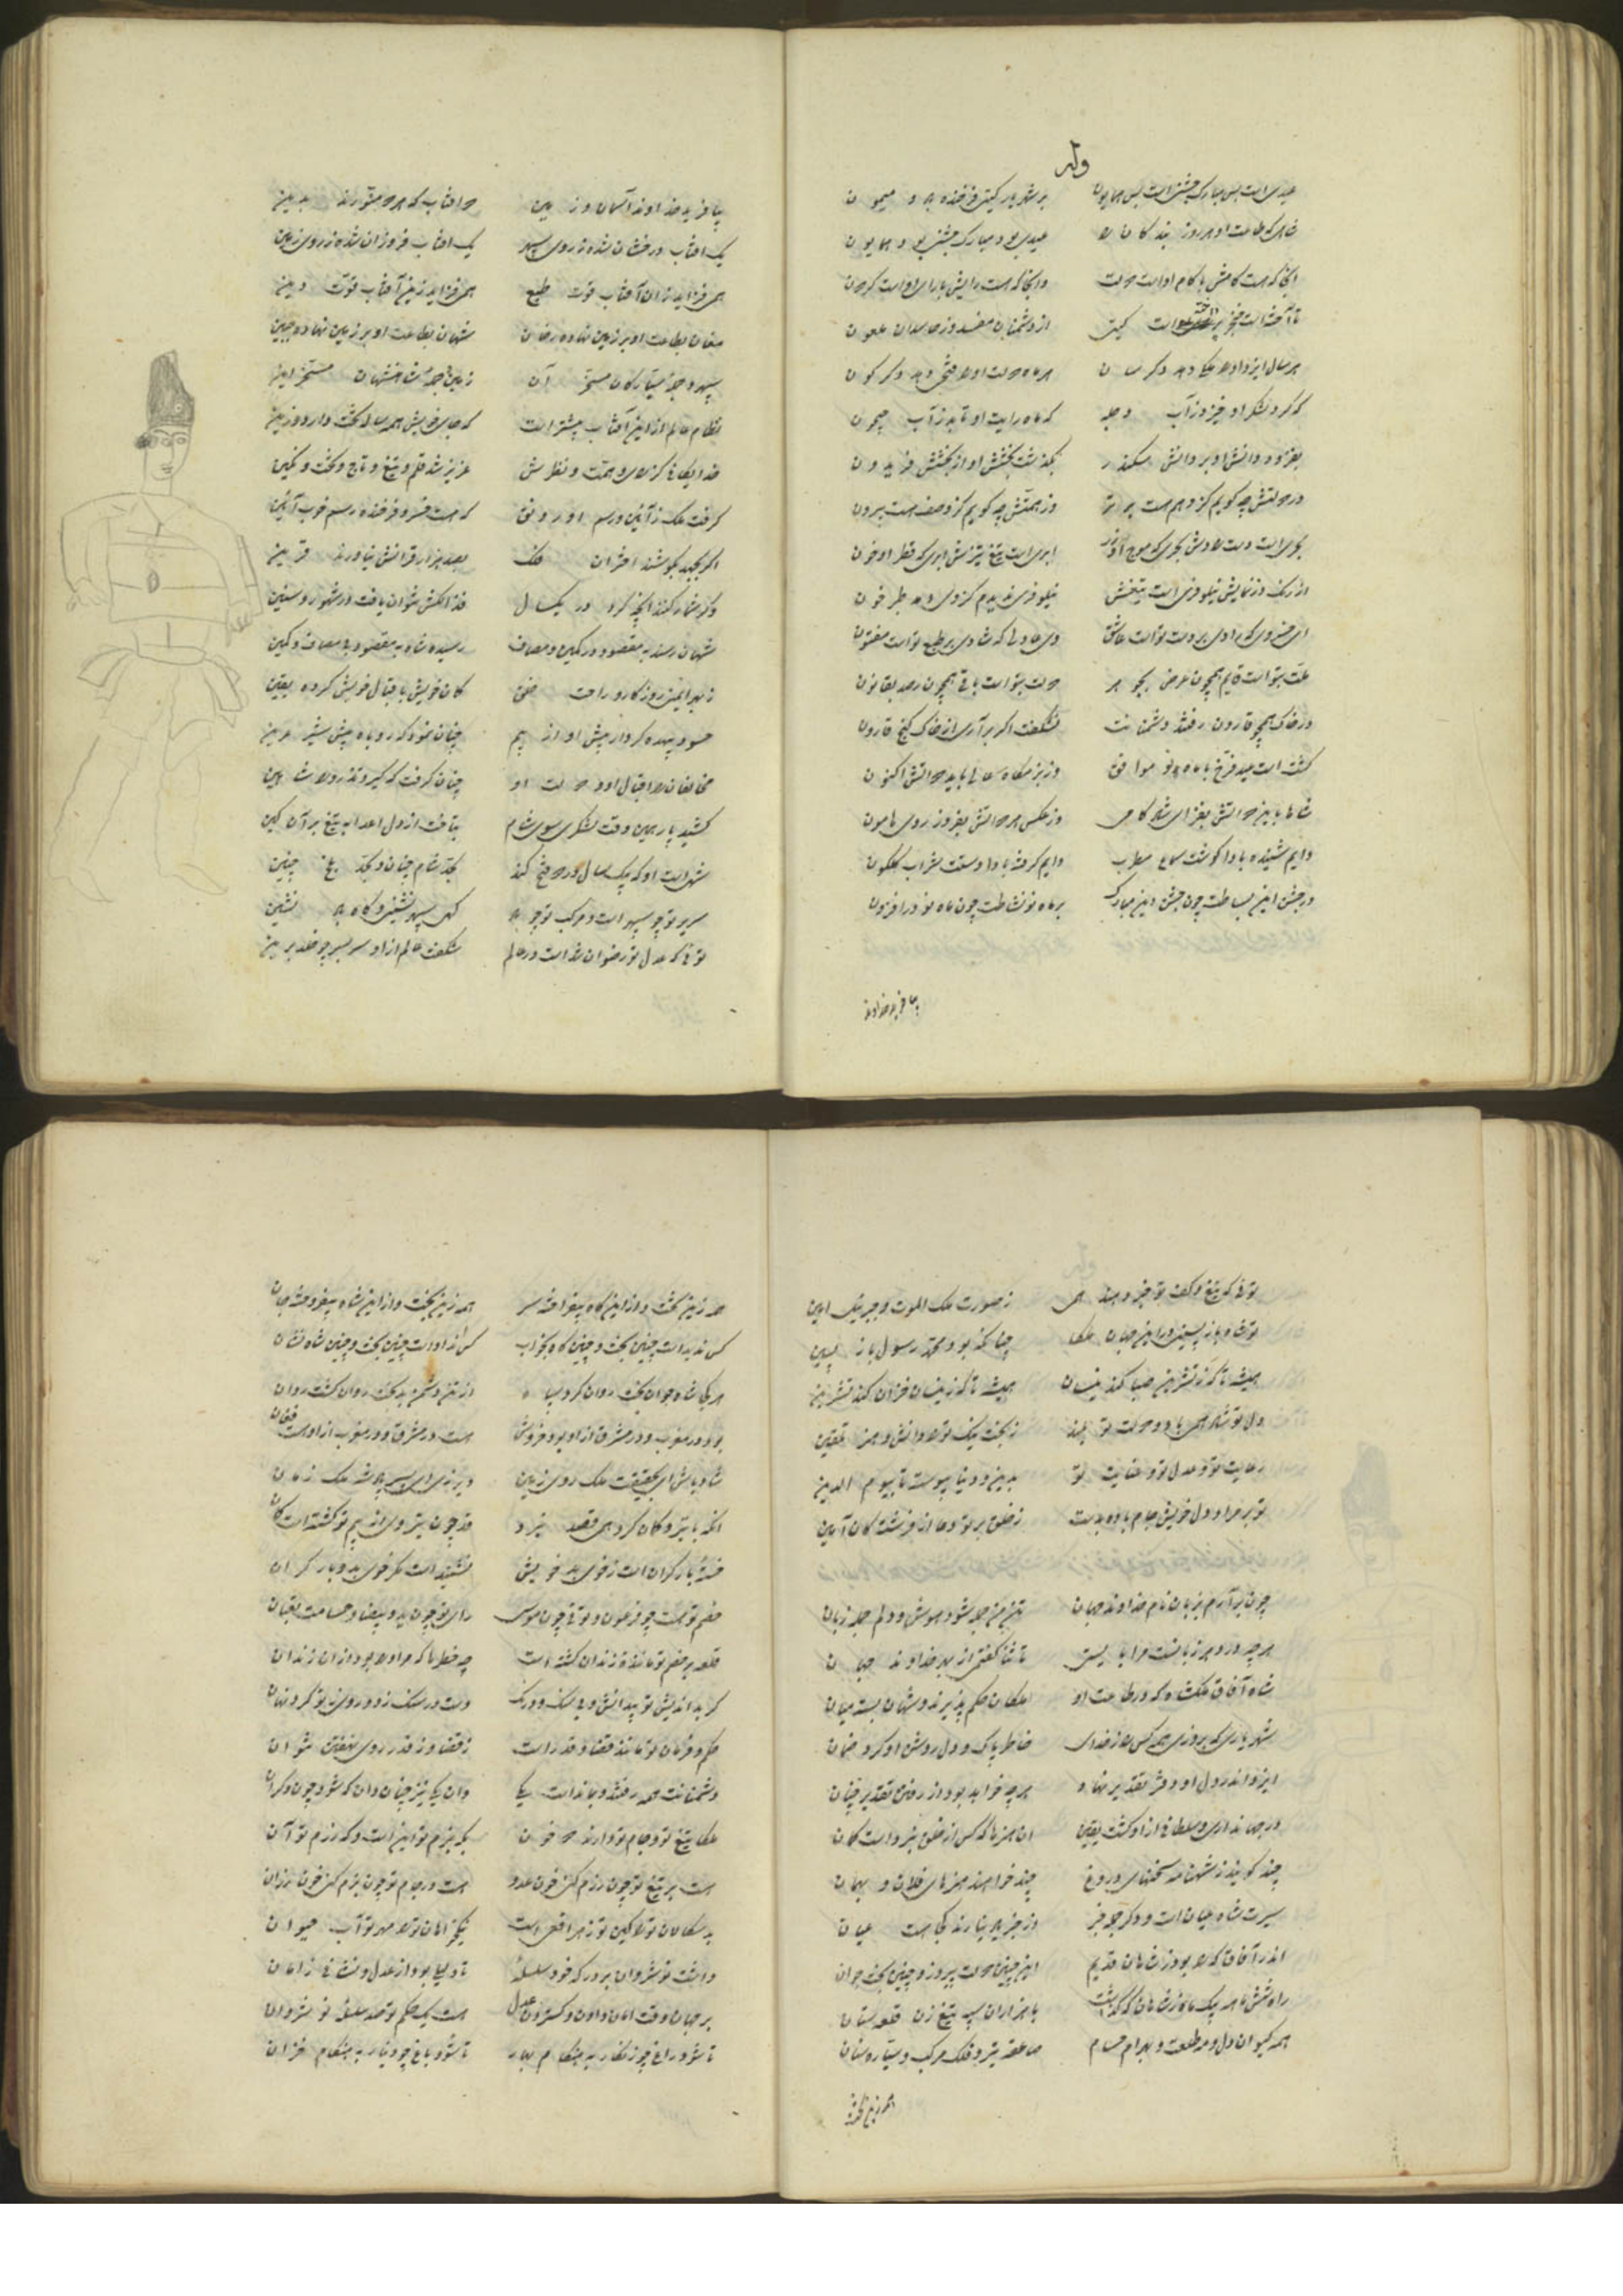 وله
عیدی است بس مبارک جشنی است بس همایون بر شهریار گیتی فرخنده باد و میمون
شاهی که طاعت او هر روز بندگان را عیدی بود مبارک جشنی بود همایون
آنجا که هست کامش با کام اوست دولت وانجا که هست رایش با رای اوست گردون
تا آخته است خنجر پرداخته است گیتی از دشمنان مفسد وز حاسدان ملعون
هر سال ایزد او را ملکی دهد دگر سان هر ماه دولت او را فتحی دهد دگرگون
که گرد لشکر او خیزد ز آب دجله که ماه رایت او تابد ز آب جیحون
بفزود دانش او بر دانش سکندر بگذشت بخشش او از بخشش فریدون
در دولتش چه گویم کز وهم هست برتر وز همتش چه گویم کز وصف هست بیرون
بحری است دست رادش بحری که موج او زر ابری است تیغ تیزش ابری که قطر او خون
از رنگ وز نمایش نیلوفری است تیغش نیلوفری ندیدم کز وی دمد طبرخون
ای خسروی که رادی بر دست تو است عاشق وی عادلی که شادی بر طبع تو است مفتون
ملت بتو است قایم همچون عرض بجوهر دولت بتو است باقی همچون رصد بقانون
در خاک همچو قارون رفتند دشمنانت نشکفت اگر برآری از خاک گنج قارون
گشت است عید فرخ با ماه دی موافق وز بزمگاه عالی باید دو آتش اکنون
شاها باین دو آتش بفزای شادکامی وز عکس هر دو آتش بفروز روی هامون
دایم شنیده بادا گوشت سماع مطرب دایم گرفته بادا دستت شراب گلگون
در جشن این بساطت چون جشن دین مبارک هر ماه نو نشاطت چون ماه نو در افزون
بیافرید خداوند
بیافرید خداوند آسمان و زمین دو آفتاب که هر دو منورند بدین
یک آفتاب درفشان شده ز روی سپهر یک آفتاب فروزان شده ز روی زمین
همی فزاید زان آفتاب قوت طبع همی فزاید زین آفتاب قوت دین
مغان بطاعت او بر زمین نهاده رخان شهان بطاعت او بر زمین نهاده جبین
سپهر و جمله سیارگان مسخر آن زمین و جمله شاهنشهان مسخر این
نظام عالم از این آفتاب بیشتر است که جای خویش همه ساله تخت دارد و زین
خدایگانی کز رای و همت و نظرش عزیز شد قلم و تیغ و تاج و تخت و نگین
گرفت ملک ز آیین و رسم او رونق که هست فر و فرخنده رسم خوب آئین
اگر بجهد بکوشند اختران فلک بصد هزار قرانش نیاورند قرین
وگر شمار کنند آنچه کرد در یکسال فذلکش نتوان یافت در شهور و سنین
شهان رسند بمقصود در کمین و مصاف رسیده شاه بمقصود بی مصاف و کمین
ز بهر ایمنی روزگار و راحت خلق کمان خویش باقبال خویش کرده یقین
حسود بیهده کردار پیش او از بیم چنان نمود که روباه پیش شیر عرین
مخالفان را اقبال او و دولت او چنان گرفت که گیرد تذرو را شاهین
کشید پار بهمین وقت لشکری سوی شام بتافت از دل اعدا به تیغ بر آن کین
شهی است او که بیک سال در دو فتح کند بحد شام چنان و بحد بلخ چنین
سریر تو چو سپهر است و مرکب تو چو باد گهی سپهر نشینی و گاه باد نشین
تو تا که عدل تو رضوان شد است در عالم شگفت عالم از او سربسر چو خلد برین
توئی که تیغ و کف تو خبر دهند همی ز صورت ملک الموت و جبرئیل امین
تو شاه باز پسینی در این جهان ملکا چنانکه بود محمد رسول باز پسین
همیشه تا که ز تشرین صبا کند نیسان همیشه تا که ز نیسان خزان کند تشرین
دل تو شاد همی باد و دولت تو بلند ز بخت نیک تو را دانش و هنر تلقین
رعایت تو و عدل تو و عنایت تو بدین و دنیا پیوسته تا بیوم الدین
تو بر مراد دل خویش جام باده بدست ز خلق بر تو دعا از فرشتگان آمین
چون برآرم بزبان نام خداوند جهان تن من جمله شود هوش و دلم جمله زبان
هر چه در دهر زبانست مرا بایستی تا ثنا گفتمی از بهر خداوند جهان
شاه آفاق ملکشاه که در طاعت او ملکان حکم پذیرند و شهان بسته میان
شهریاری که بروزی همه کس را ز خدای خاطر پاک و دل روشن او کرد ضمان
ایزد اندر دل او دفتر تقدیر نهاد هر چه خواهد بود از رفتن تقدیر چنان
در جهانداری و سلطانی از او گشت یقین آن هنرها که کس از خلق نبرد است گمان
چند گویند ز شهنامه سخنهای دروغ چند خوانند هنرهای فلان و بهمان
سیرت شاه عیان است و دگر جمله خبر در خبر یاد نیارند کجا هست عیان
اندر آفاق که را بود ز شاهان قدیم این چنین دولت پیروز و چنین بخت جوان
راه شش ماهه بیک ماه ز شاهان که گذاشت با هزاران سپه تیغ زن قلعه ستان
همه کیوان دل و مه طلعت و بهرام حسام صاعقه تیر و فلک مرکب و سیاره سنان
همه زین تخت
همه زین تخت و از این گاه بیفراخته سر همه زین بخت و از این شاه بیفروخته جان
کس ندیدست چنین تخت و چنین گاه بخواب کس نداد است چنین بخت و چنین شاه نشان
هر کجا شاه جوان بخت روان کرد سپاه از تن دشمن بدبخت روان گشت روان
بود در مغرب و در مشرق از او بود خروش هست در مشرق و در مغرب از او هست فغان
شاد باش ای بحقیقت ملک روی زمین دیر زی ای بسزا پادشه ملک زمان
آنکه با تیر و کمان کرد همی قصد نبرد قد چون تیر وی از بیم تو گشته است کمان
خسته بار گران است ز خوی بد خویش نشنید است مگر خوی بد و بار گران
خصم تو هست چو فرعون و تو چون موسی رای تو چون ید بیضا و حسامت ثعبان
قلعه بر خصم تو ماننده زندان گشته است چه خطر ماند مر او را بود از آن زندان
گر بداندیش تو بیدانش و بی سنگ و درنگ دست در سنگ زد و روی ز تو کرد نهان
حکم و فرمان تو مانند قضا و قدر است ز قضا و ز قدر روی نهفتن نتوان
دشمنانت همه رفتند و بماند است یکی وان یکی نیز چنان دان که شود چون دگران
ملکا تیغ تو و جام تو دارند دو خون یکی بزم تو این است و گه رزم تو آن
هست بر تیغ تو چون رزم کنی خون عدو هست در جام تو چون بزم کنی خون رزان
بدسگالان تو را کین تو زهر افعی است نیکخواهان تو را مهر تو آب حیوان
داشت نوشروان بر درگه خود سلسله تا دلیلی بود از عدل و نشانی ز امان
بر جهان وقت امان دادن و گستردن عدل هست یک حکم تو صد سلسله نوشروان
تا شود راغ چو زنگار به هنگام بهار تا شود باغ چو دینار به هنگام خزان